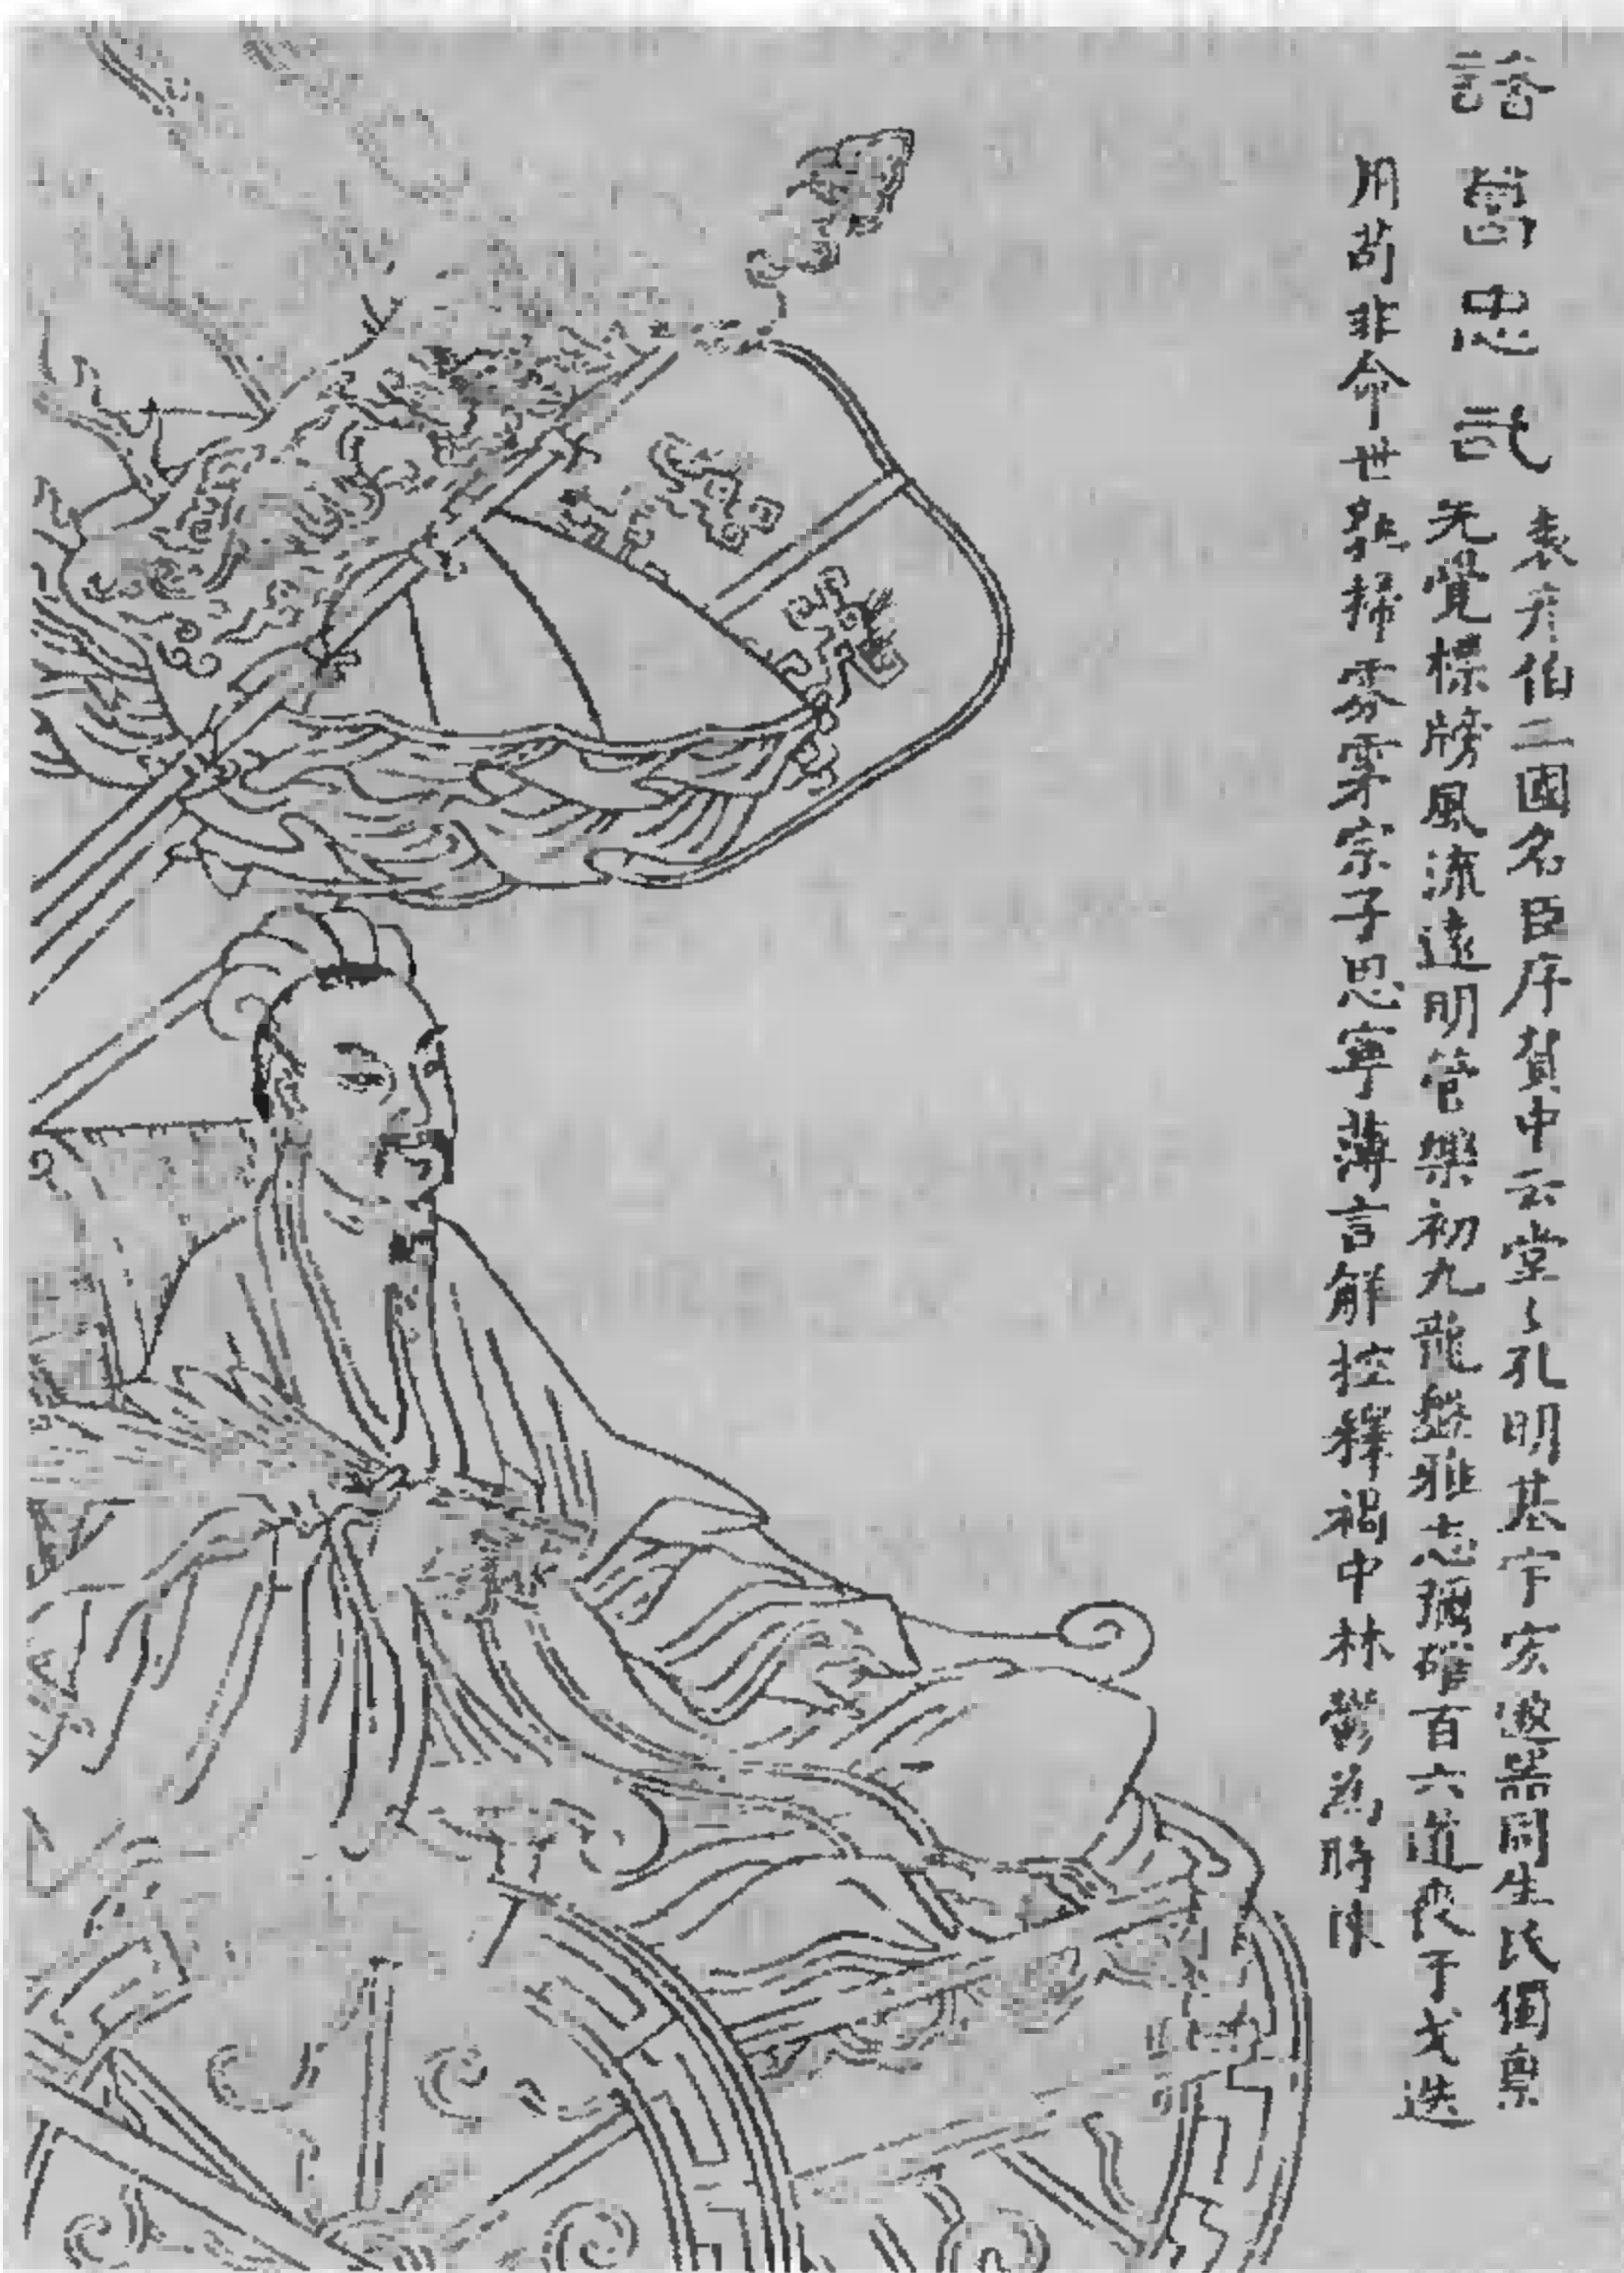 諸葛忠武
袁彥伯三國名臣序贊中云堂〻孔明基宇宏邈器同生民獨稟
先覺標牓風流遠明管樂初九龍盤雅志彌確百六道喪干戈迭
用苟非命世孰掃雰雺宗子思寧薄言解控釋褐中林鬱為時棟